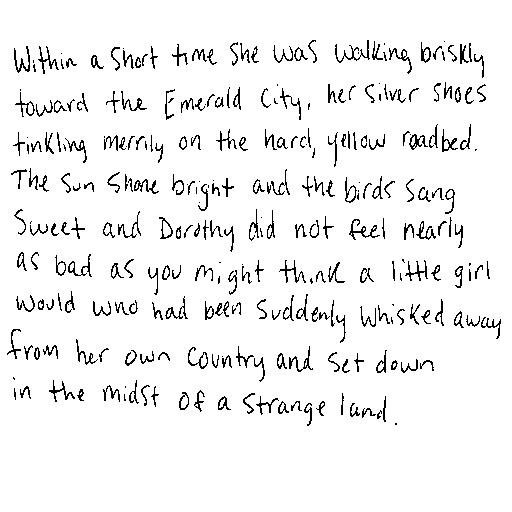 Within a short time she was walking briskly
toward the Emerald City, her Silver Shoes
tinkling merrily on the hard, yellow roadbed.
The sun shone bright and the birds sang
sweet and Dorothy did not feel nearly
as bad as you might think a little girl
would who had been suddenly whisked away
from her own country and set down
in the midst of a strange land.